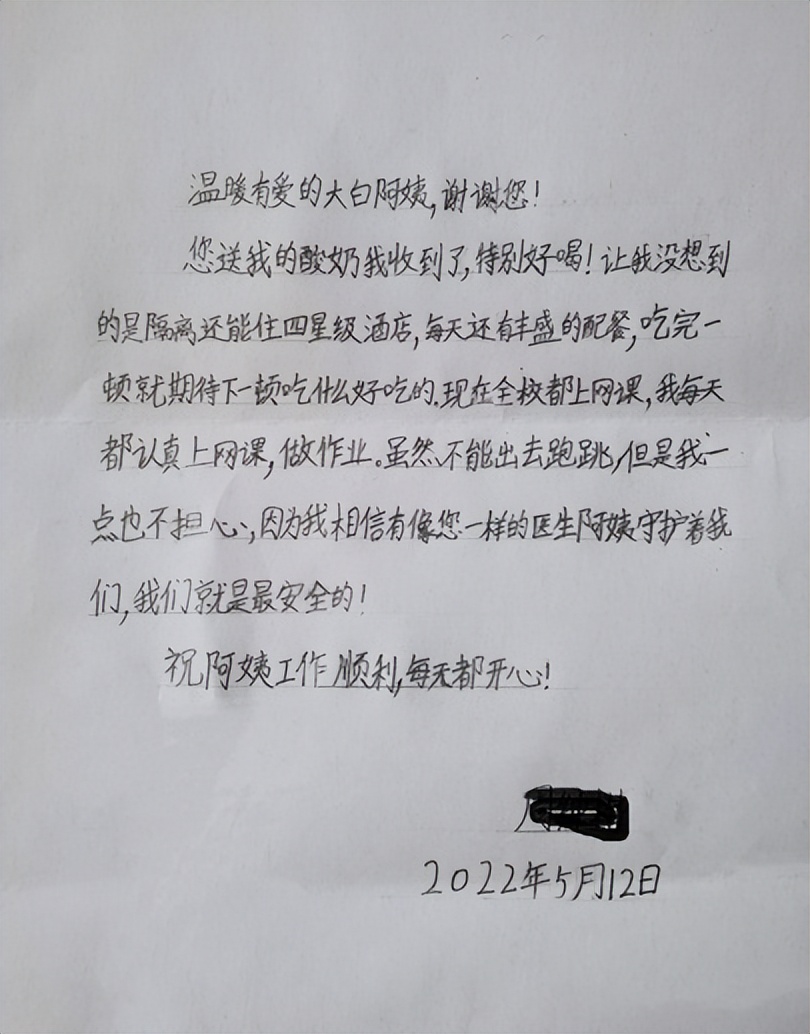 温暖有爱的大白阿姨,谢谢您!
您送我的酸奶我收到了,特别好喝!让我没想到
的是隔离还能住四星级酒店,每天还有丰盛的配餐,吃完一
顿就期待下一顿吃什么好吃的.现在全校都上网课,我每天
都认真上网课,做作业。虽然不能出去跑跳,但是我一
点也不担心,因为我相信有像您一样的医生阿姨守护着我
们,我们就是最安全的!
祝阿姨工作顺利,每天都开心!
2022年5月12日